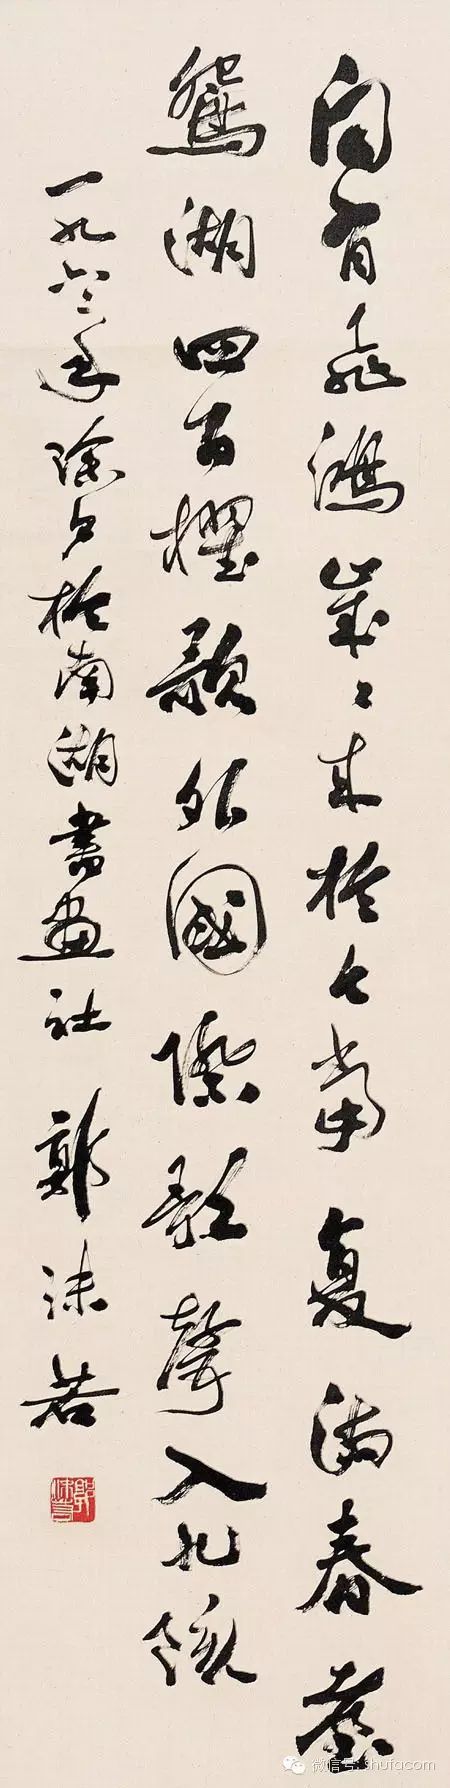 闻有飛鴻歲々来於今當复滿春臺
鴛湖四百櫂歌外國際歌聲入九陔
一九六三年除夕於南湖書畫社 郭沫若
郭沫若
微信号: shufacom